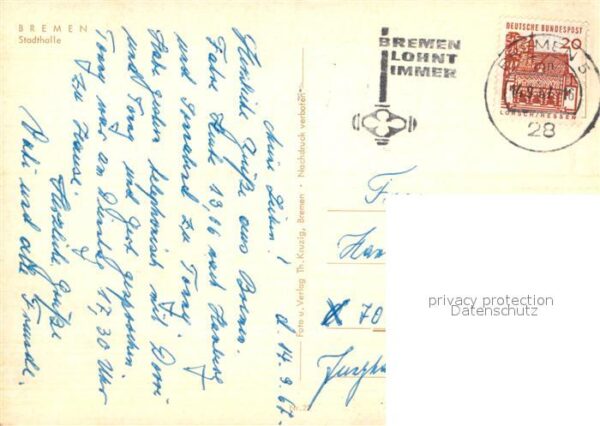 BREMEN
Stadthalle
d. 14.9.67.
Meine Lieben!
Herzliche Grüße aus Bremen.
Fahre heute 13,06 nach Hamburg
und Sonnabend zu Tony.
Habe gestern telephonisch mit Dorri
und Tony und gesprochen.
Tony war am Dienstag 17,30 Uhr
zu Hause.
Herzliche Grüße
Vati und alle Freunde.
Foto u. Verlag Th. Kruzig, Bremen · Nachdruck verboten
BREMEN
LOHNT
IMMER
DEUTSCHE BUNDESPOST
20
LORSCH/HESSEN
BREMEN 5
28
70
privacy protection
Datenschutz